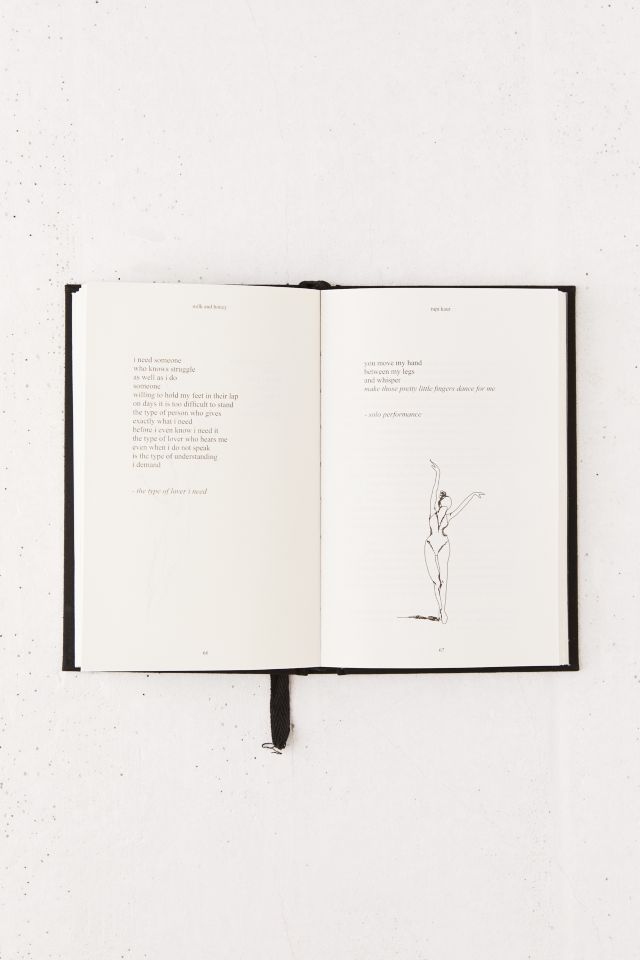 milk and honey
i need someone
who knows struggle
as well as i do
someone
willing to hold my feet in their lap
on days it is too difficult to stand
the type of person who gives
exactly what i need
before i even know i need it
the type of lover who hears me
even when i do not speak
is the type of understanding
i demand
- the type of lover i need
66
rupi kaur
you move my hand
between my legs
and whisper
make those pretty little fingers dance for me
- solo performance
67